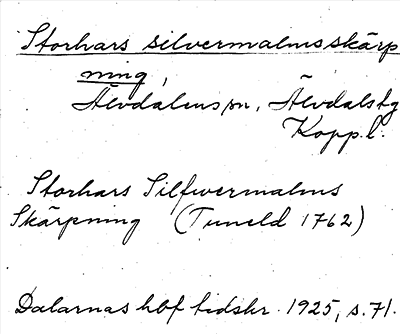 Storhars silvermalmsskärp
ning,
Älvdalens sn, Älvdals tg
Kopp. l.
Storhars Silfwermalms
Skärpning (Tuneld 1762)
Dalarnas hbf tidskr. 1925, s. 71.